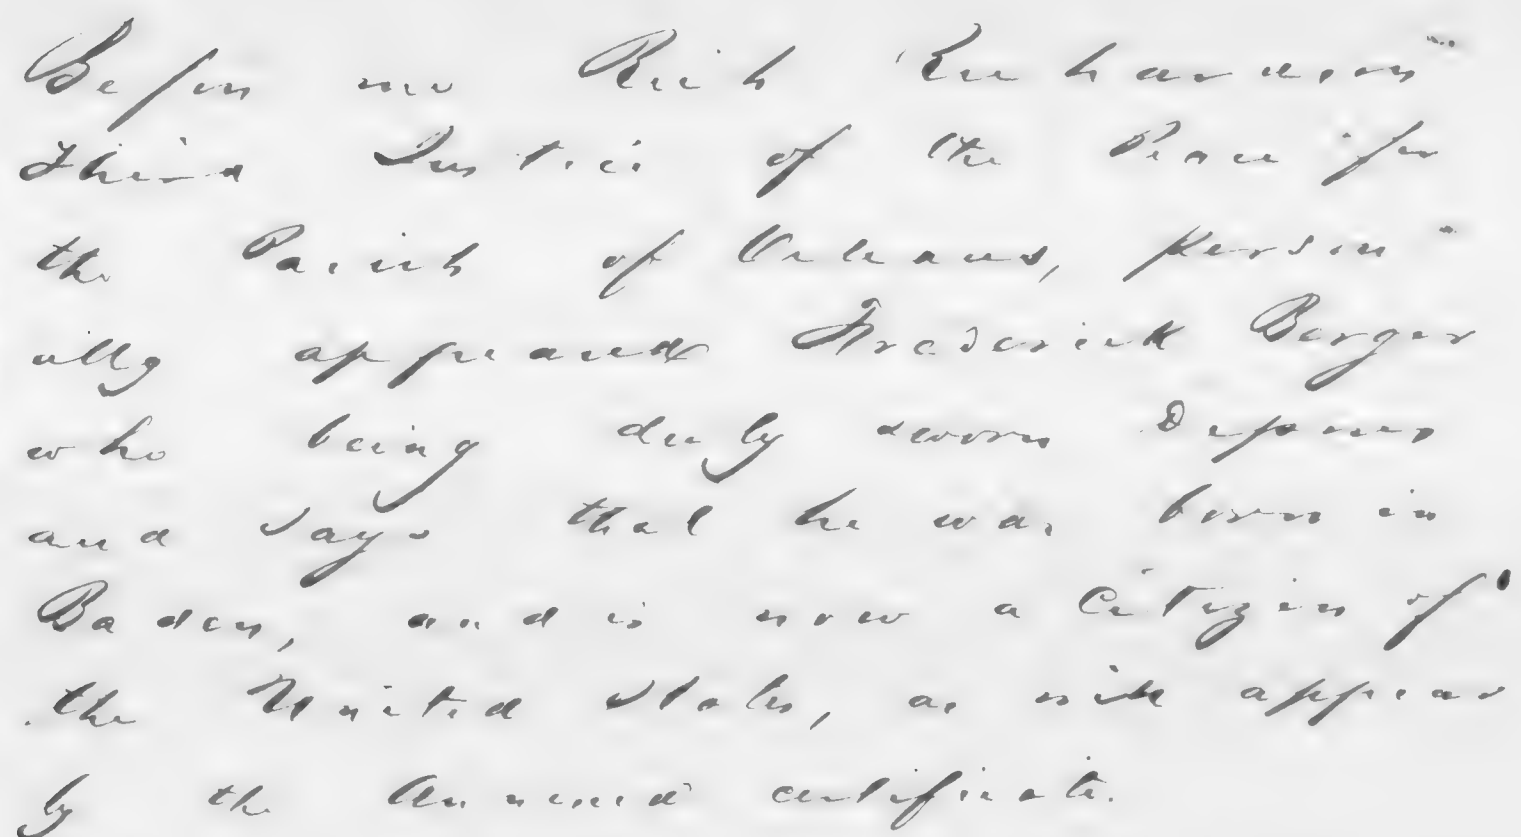 Before me Rich Richardson
Third Justice of the Peace for
the Parish of Orleans, person
ally appeared Frederick Berger
who being duly sworn Deposes
and says that he was born in
Baden, and is now a Citizen of
the United States, as will appear
by the Annexed certificate.